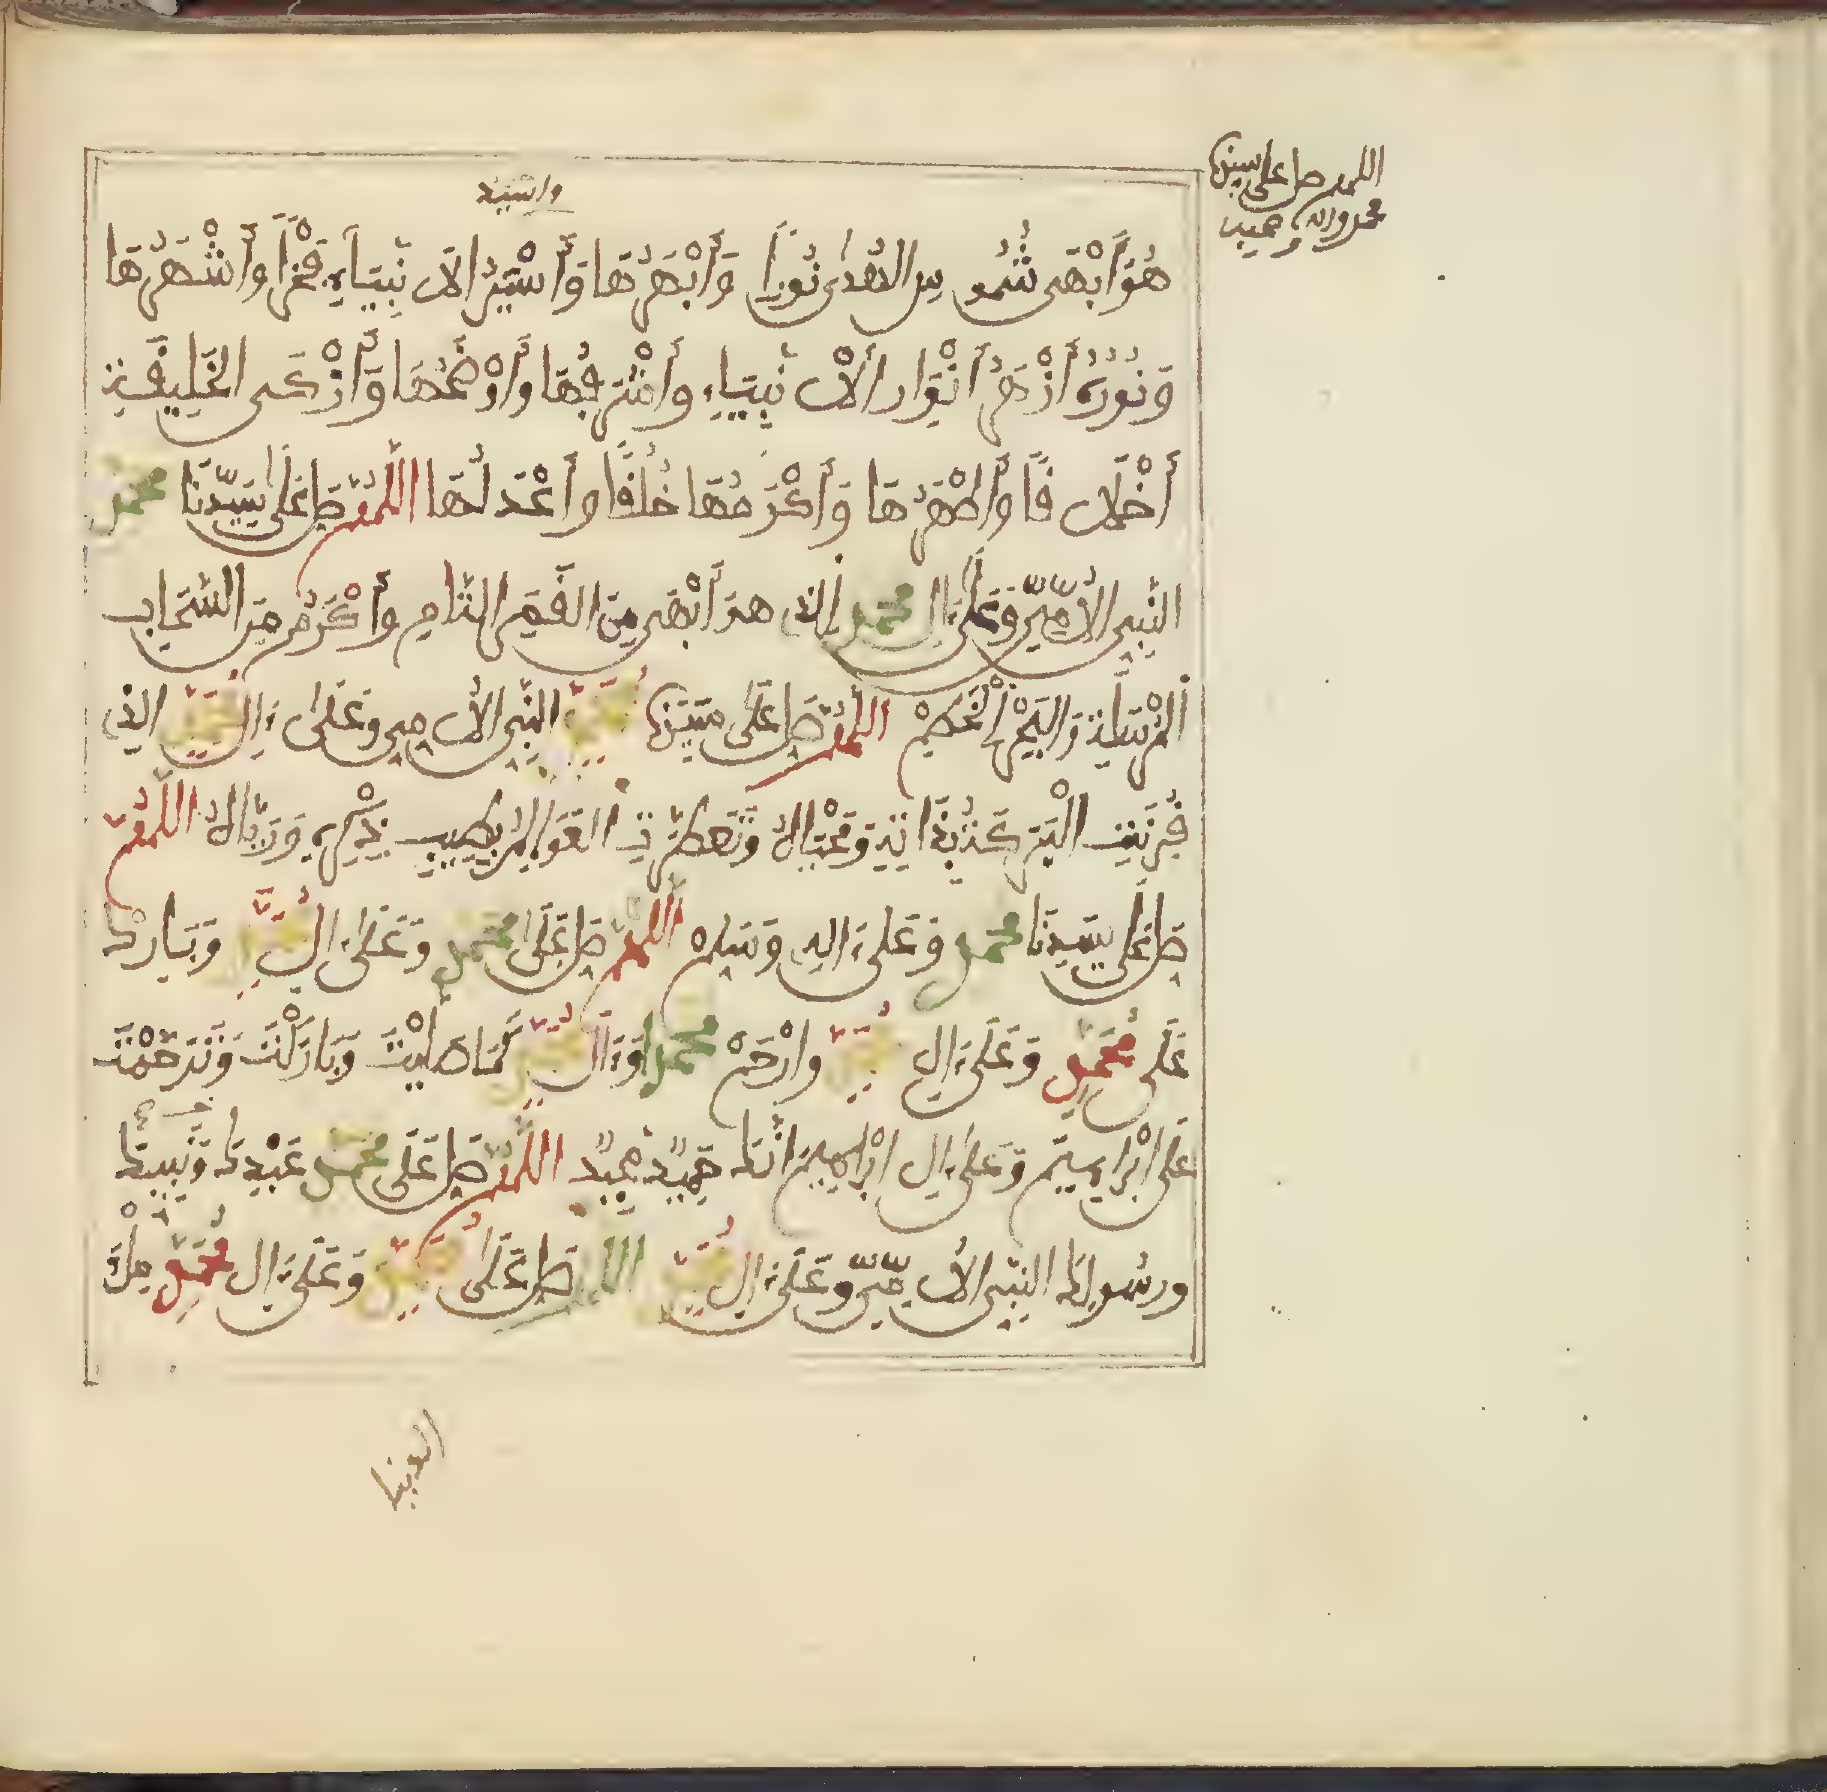 اللهم صل على سيدنا
محمد وءاله وصحبه
هُوَ أَبْهَى شُمُوسِ الْهُدَىٰ نُوراً وَأَبْهَرُهَا وَأَسْيَرُ الْأَنْبِيَاءِ فَخْراً وَأَشْهَرُهَا
وَنُورُهُ أَزْهَرُ أَنْوَارِ الْأَنْبِيَاءِ وَأَشْرَفُهَا وَأَوْضَحُهَا وَأَزْكَى الْخَلِيقَةِ
أَخْلَاقاً وَأَطْهَرُهَا وَأَكْرَمُهَا خُلُقاً وَأَعْدَلُهَا اللَّهُمَّ صَلِّ عَلَىٰ سَيِّدِنَا مُحَمَّدٍ
النَّبِيِّ الْأُمِّيِّ وَعَلَىٰ ءَالِ مُحَمَّدٍ الَّذِي هُوَ أَبْهَى مِنَ الْقَمَرِ التَّامِ وَأَكْرَمُ مِنَ السَّحَابِ
الْمُرْسَلَةِ وَالْبَحْرِ الْخَطِمْ اللَّهُمَّ صَلِّ عَلَىٰ سَيِّدِنَا مُحَمَّدٍ النَّبِيِّ الْأُمِّيِّ وَعَلَىٰ ءَالِ مُحَمَّدٍ الَّذِي
قُرِنَتِ الْبَرَكَةُ بِذَاتِهِ وَمُحَيَّاهُ وَتَعَطَّرَتِ الْعَوَالِمُ بِطِيبِ ذِكْرِهِ وَرَيَّاهُ اللَّهُمَّ
صَلِّ عَلَىٰ سَيِّدِنَا مُحَمَّدٍ وَعَلَىٰ ءَالِهِ وَسَلِّمْ اللَّهُمَّ صَلِّ عَلَىٰ مُحَمَّدٍ وَعَلَىٰ ءَالِ مُحَمَّدٍ وَبَارِكْ
عَلَىٰ مُحَمَّدٍ وَعَلَىٰ ءَالِ مُحَمَّدٍ وَارْحَمْ مُحَمَّداً وَءَالَ مُحَمَّدٍ كَمَا صَلَّيْتَ وَبَارَكْتَ وَتَرَحَّمْتَ
عَلَىٰ إِبْرَاهِيمَ وَعَلَىٰ ءَالِ إِبْرَاهِيمَ إِنَّكَ حَمِيدٌ مَجِيدٌ اللَّهُمَّ صَلِّ عَلَىٰ مُحَمَّدٍ عَبْدِكَ وَنَبِيِّكَ
وَرَسُولِكَ النَّبِيِّ الْأُمِّيِّ وَعَلَىٰ ءَالِ مُحَمَّدٍ اللهم صَلِّ عَلَىٰ مُحَمَّدٍ وَعَلَىٰ ءَالِ مُحَمَّدٍ مِلْءَ
الدنيا